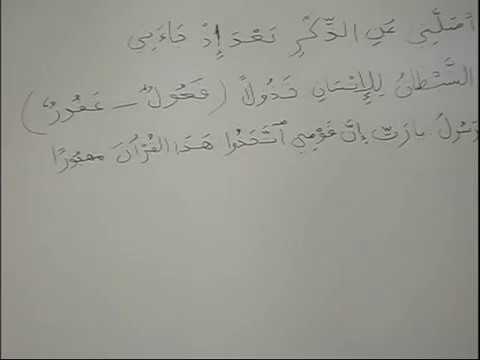 أضلّني عَنِ الذِّكْرِ بَعْدَ إِذْ جَاءَنِي
الشَّيْطَانُ لِلْإِنْسَانِ خَذُولًا (فَعُولٌ - غَفُورٌ)
الرَّسُولُ يَا رَبِّ إِنَّ قَوْمِي ٱتَّخَذُوا هَذَا القُرْآنَ مهجورًا